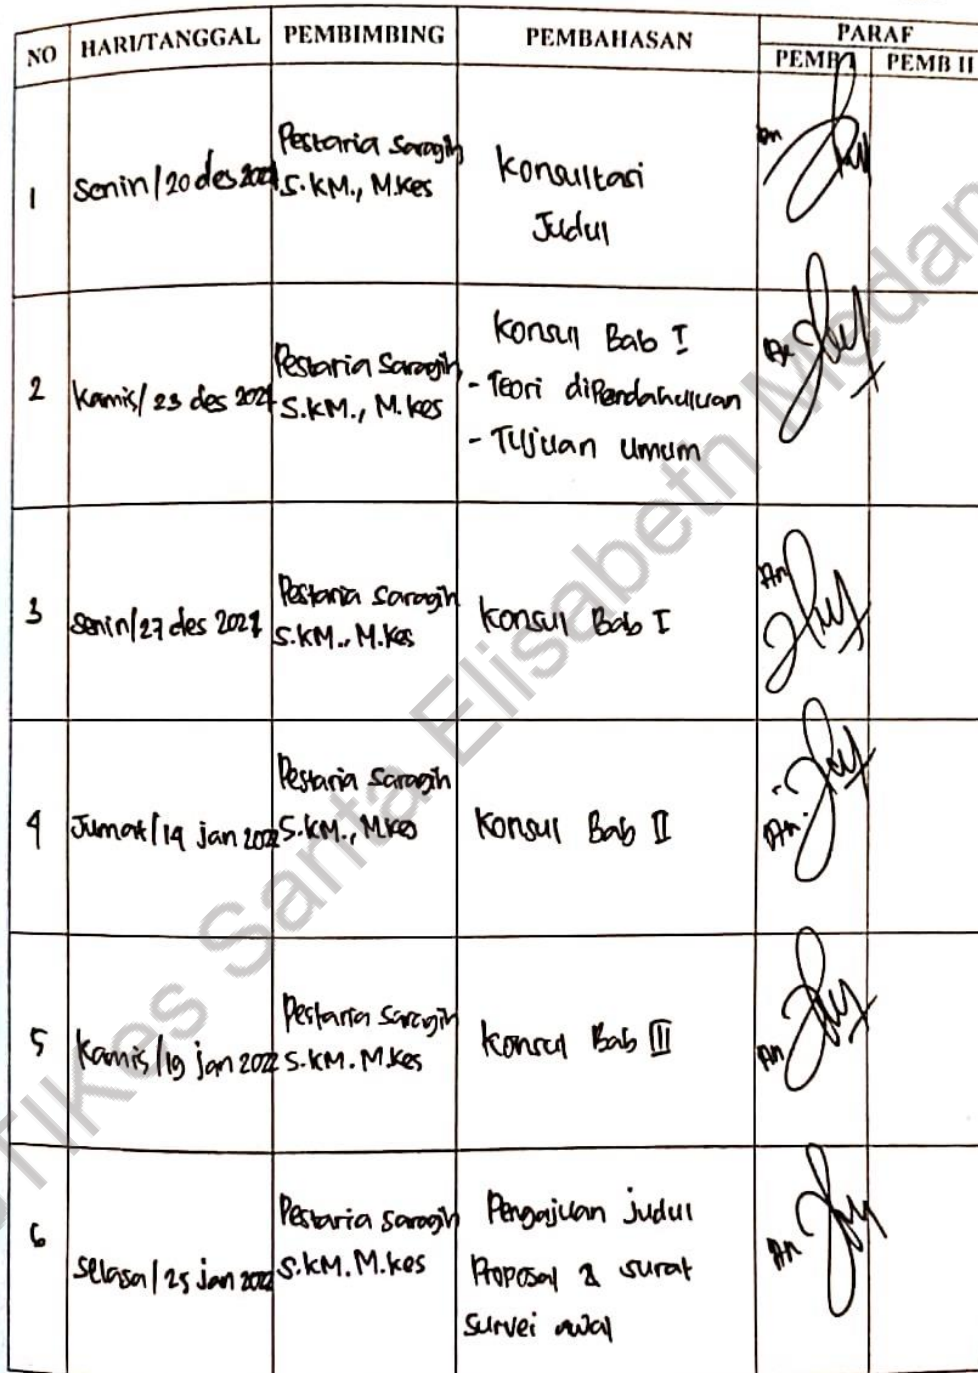 NO HARI/TANGGAL PEMBIMBING PEMBAHASAN PARAF
PEMB I PEMB II
1 Senin/20 des 2021 Pestaria Saragih S.KM., M.Kes Konsultasi
Judul
2 Kamis/ 23 des 2021 Pestaria Saragih S.KM., M.Kes Konsul Bab I
- Teori diPendahuluan
- Tujuan Umum
3 Senin/27 des 2021 Pestaria Saragih S.KM., M.Kes Konsul Bab I
4 Jumat/14 jan 2022 Pestaria Saragih S.KM., M.Kes Konsul Bab II
5 Kamis/19 jan 2022 Pestaria Saragih S.KM. M.Kes Konsul Bab III
6 Selasa/25 jan 2022 Pestaria Saragih S.KM. M.Kes Pengajuan judul
Proposal & surat
Survei awal
STIKes Santa Elisabeth Medan